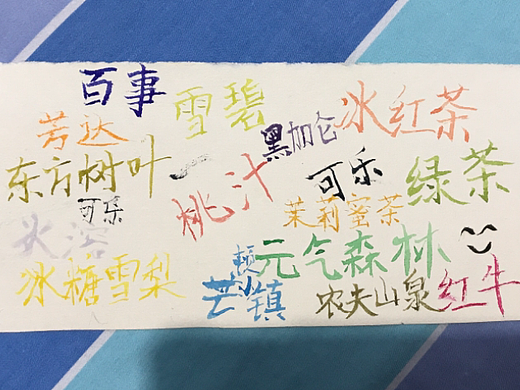 百事
雪碧
冰红茶
芳达
黑加仑
东方树叶
桃汁
可乐
绿茶
可乐
茉莉蜜茶
水溶
元气森林
冰糖雪梨
芒
小镇
农夫山泉
红牛